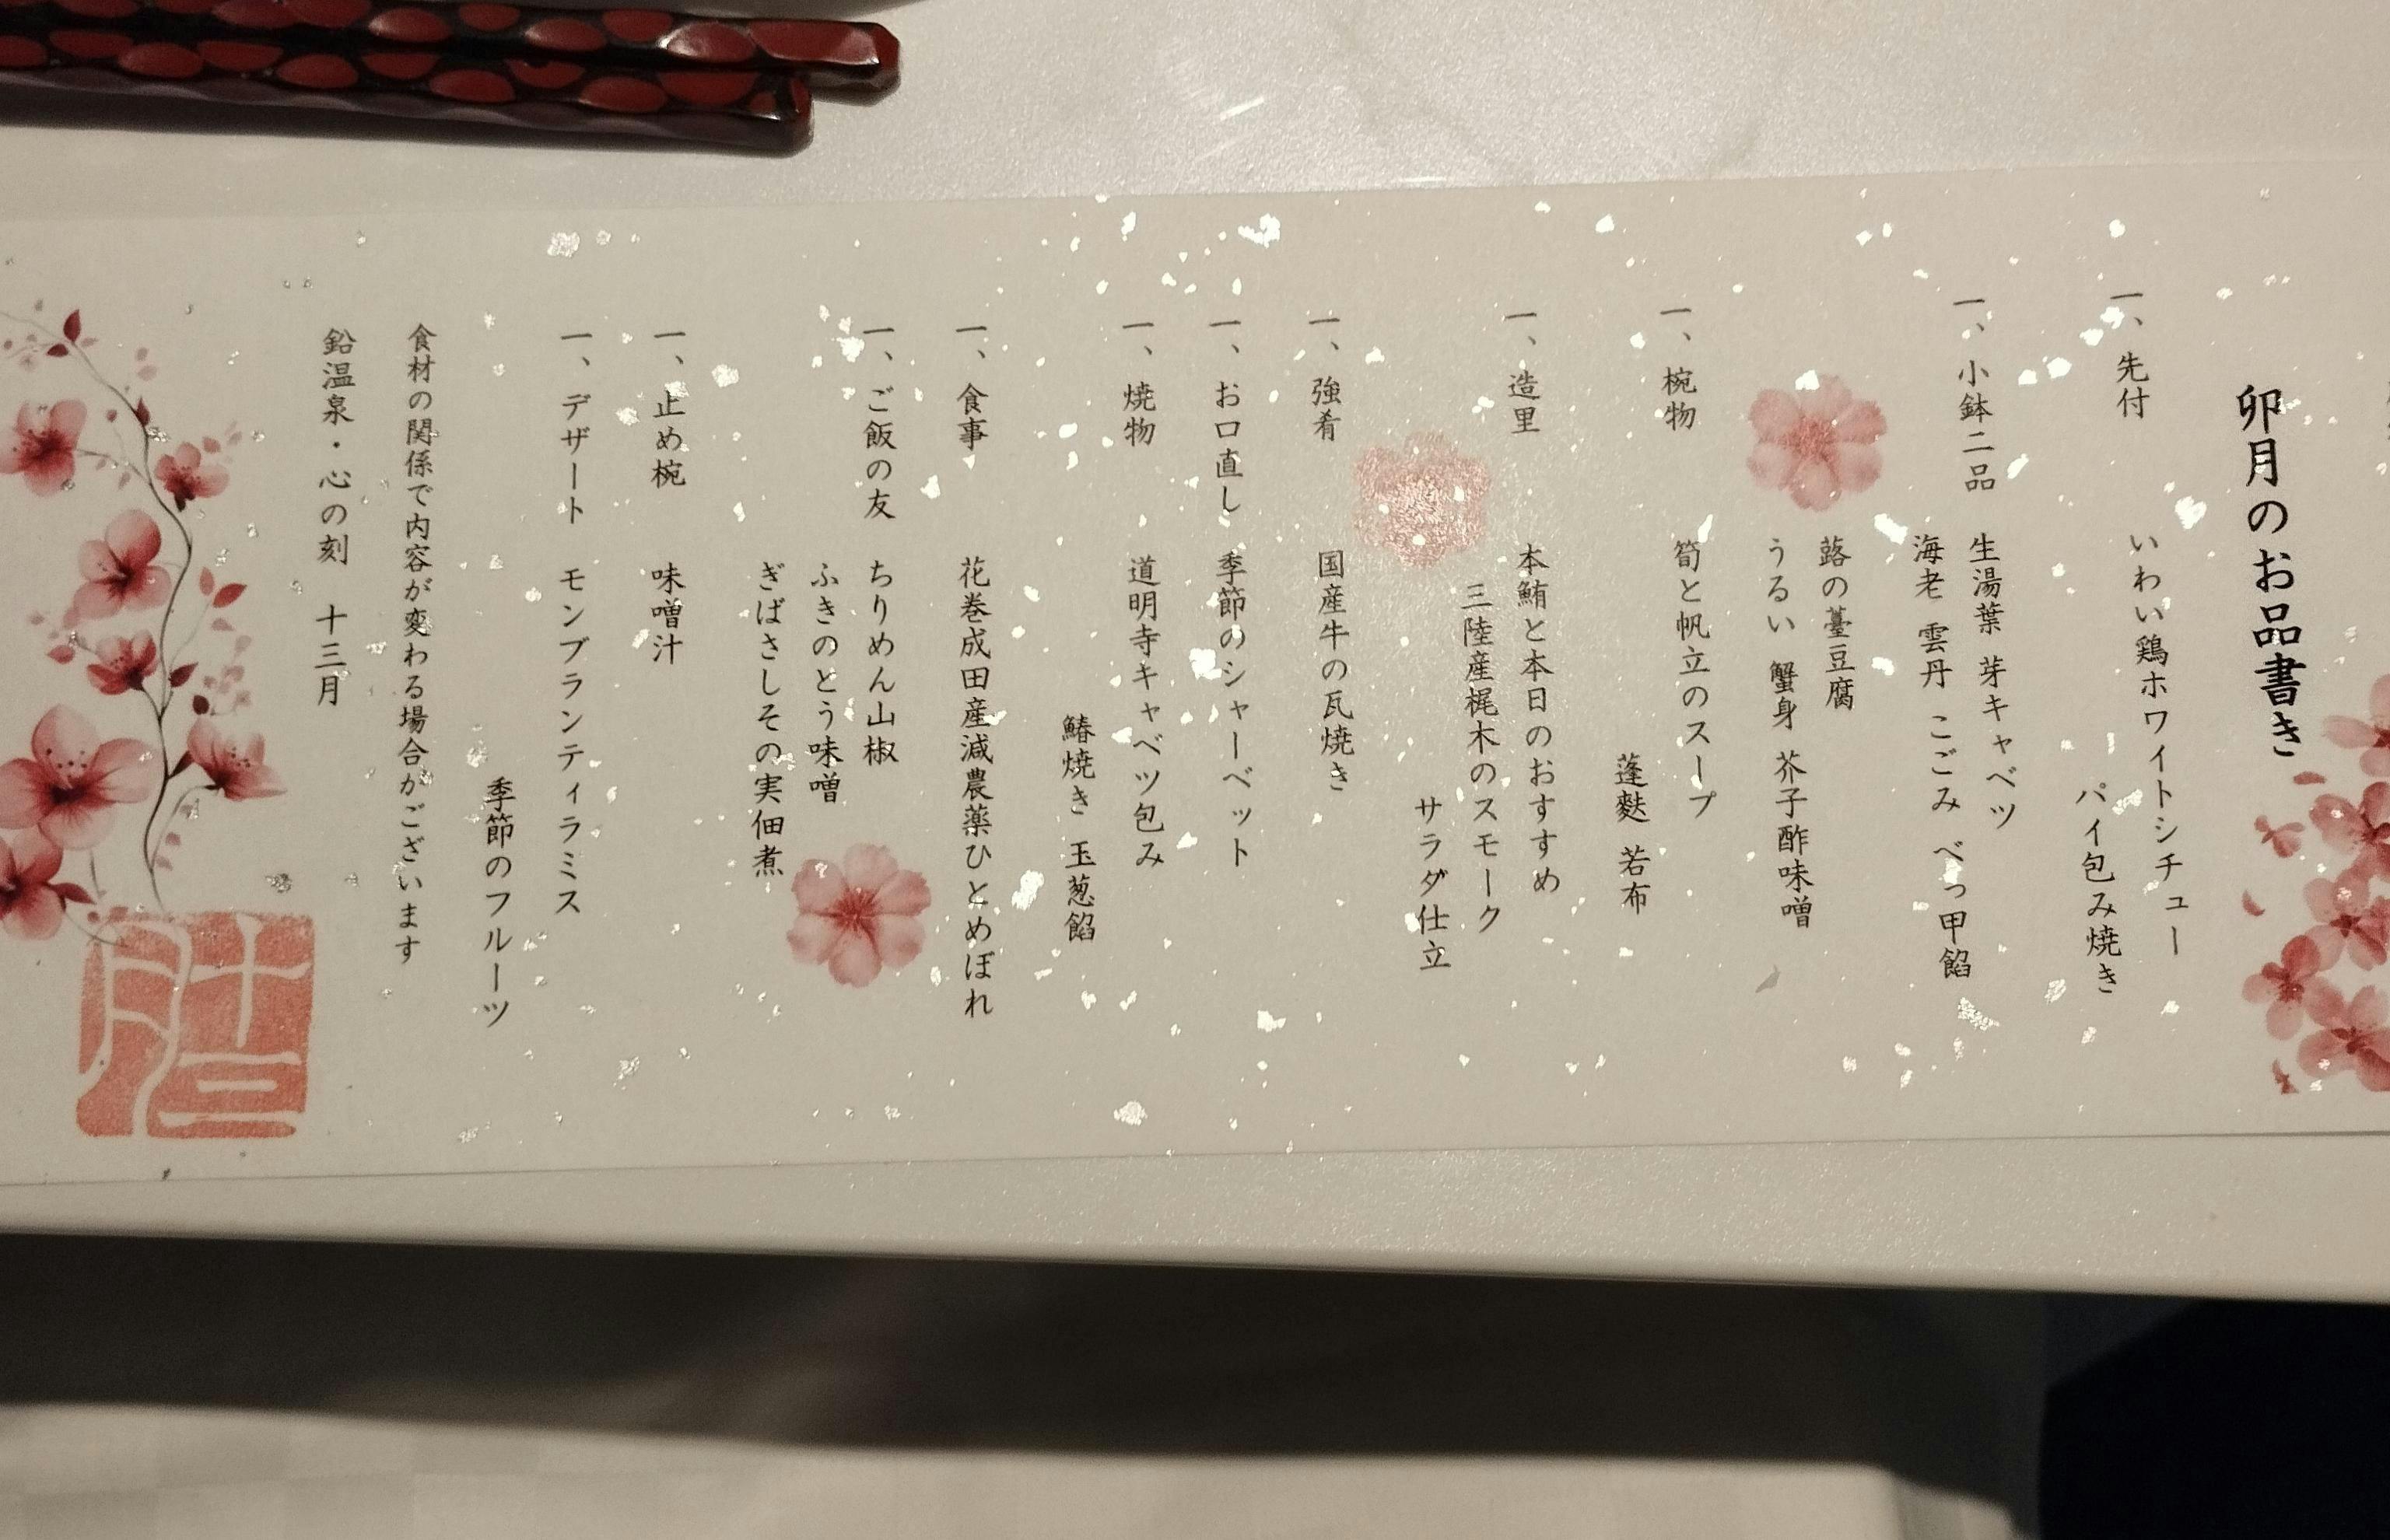 卯月のお品書き
一、先付 いわい鶏ホワイトシチュー
パイ包み焼き
一、小鉢二品 生湯葉 芽キャベツ
海老 雲丹 こごみ べっ甲餡
蕗の薹豆腐
うるい 蟹身 芥子酢味噌
一、椀物 筍と帆立のスープ
蓬麩 若布
一、造里 本鮪と本日のおすすめ
三陸産梶木のスモーク
サラダ仕立
一、強肴 国産牛の瓦焼き
一、お口直し 季節のシャーベット
一、焼物 道明寺キャベツ包み
鰆焼き 玉葱餡
一、食事 花巻成田産減農薬ひとめぼれ
一、ご飯の友 ちりめん山椒
ふきのとう味噌
ぎばさしその実佃煮
一、止め椀 味噌汁
一、デザート モンブランティラミス
季節のフルーツ
食材の関係で内容が変わる場合がございます
鉛温泉・心の刻 十三月